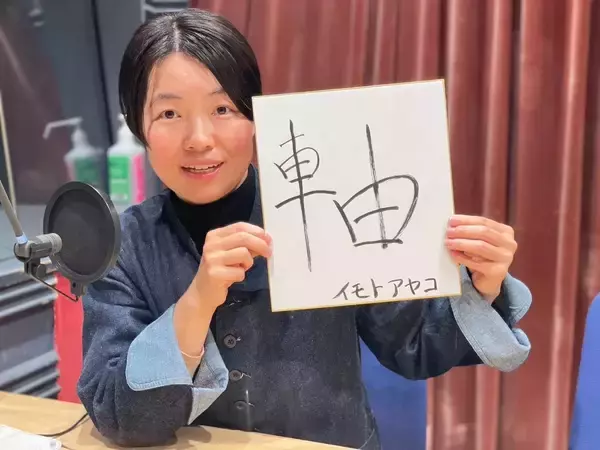 軸
イモトアヤコ